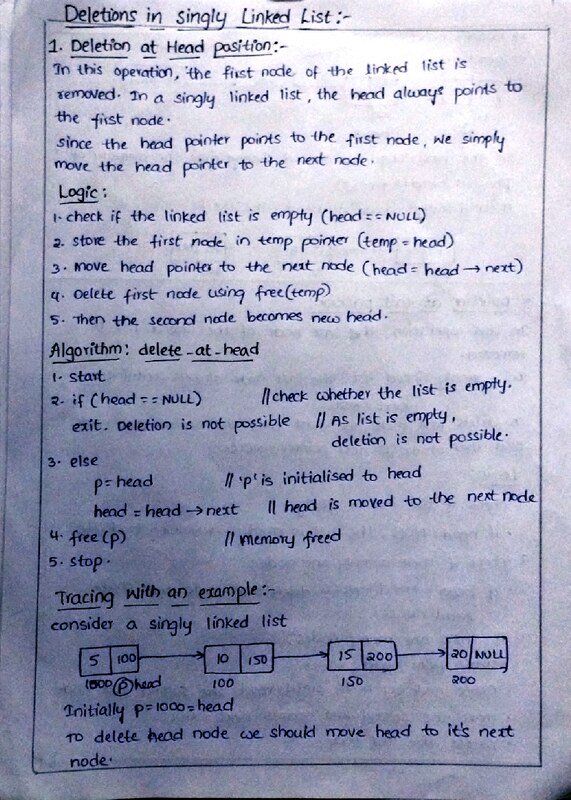 Deletions in Singly Linked List:-
1. Deletion at Head position:-
In this operation, the first node of the linked list is
removed. In a singly linked list, the head always points to
the first node.
since the head pointer points to the first node, we simply
move the head pointer to the next node.
Logic:
1. check if the linked list is empty (head == NULL)
2. store the first node in temp pointer (temp = head)
3. move head pointer to the next node (head = head → next)
4. Delete first node using free(temp)
5. Then the second node becomes new head.
Algorithm: delete-at-head
1. start
2. if (head == NULL) //check whether the list is empty.
exit. Deletion is not possible // As list is empty,
deletion is not possible.
3. else
p = head // 'p' is initialised to head
head = head → next // head is moved to the next node
4. free(p) // memory freed
5. stop.
Tracing with an example:-
consider a singly linked list
5 100 10 150 15 200 20 NULL
1000 p head 100 150 200
Initially p=1000=head
To delete head node we should move head to it's next
node.